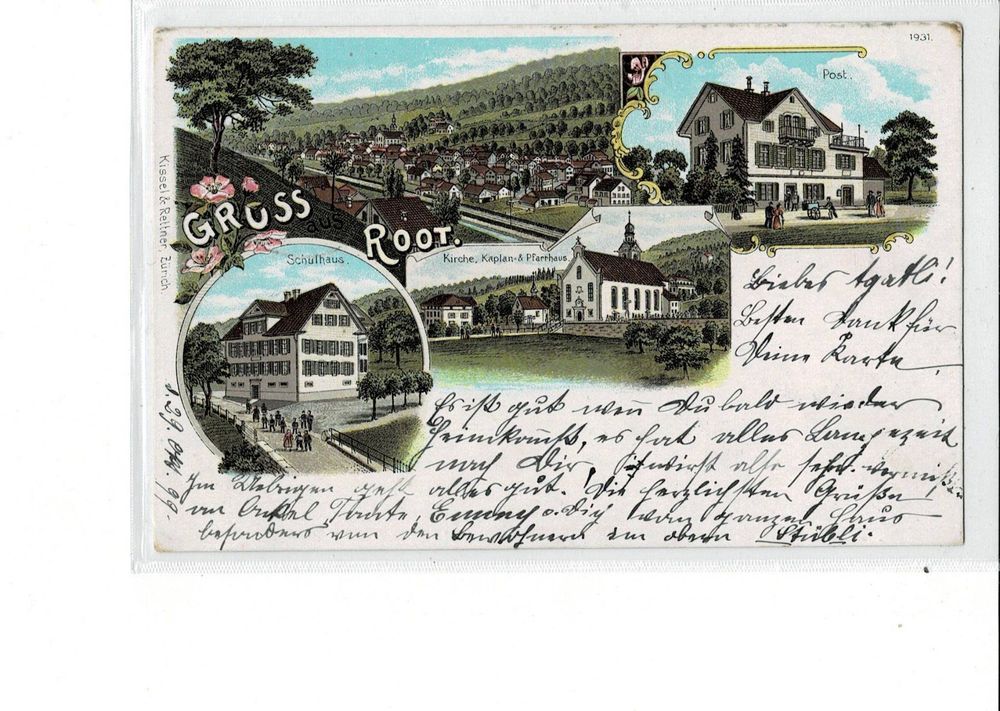 1931.
Post.
Kissel & Rettner, Zürich.
GRUSS
aus
ROOT.
Schulhaus.
Kirche, Kaplan- & Pfarrhaus.
Liebes Agatli!
Besten Dank für
Deine Karte.
Es ist gut wen Du bald wieder
heimkomst, es hat alles Langezeit
nach Dir, wirst also sehr vermißt
Im Uebrigen geht alles gut. Die herzlichsten Grüße
an Onkel, Tante, Emmy u. Dich vom ganzen Haus
besonders von den Bewohnern im obern Stübli.
d. 29. Okt. 99.